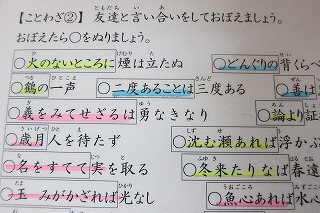 【ことわざ②】 友達と言い合いをしておぼえましょう。
おぼえたら○をぬりましょう。
○火のないところに煙は立たぬ ○どんぐりの背くらべ
○鶴の一声 ○二度あることは三度ある ○善は
○義をみてせざるは勇なきなり ○論より証
○歳月人を待たず ○沈む瀬あれば浮かぶ
○名をすてて実を取る ○冬来たりなば春遠
○玉 みがかざれば光なし ○魚心あれば水心